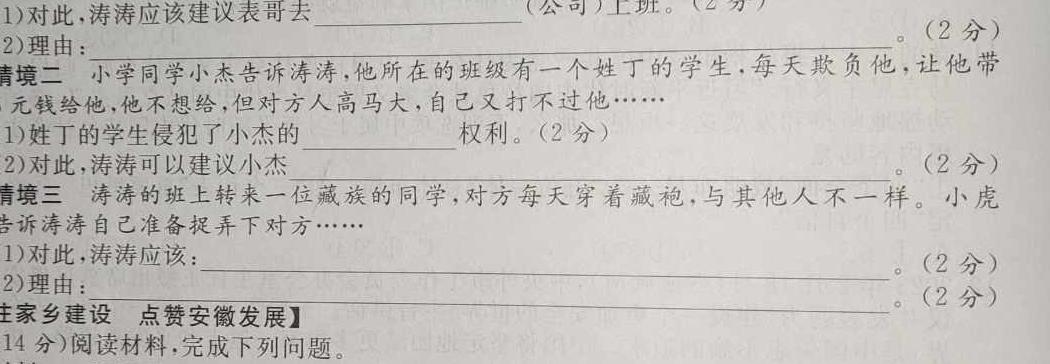 1)对此,涛涛应该建议表哥去____________(公司)上班。(2分)
2)理由:____________。(2分)
情境二 小学同学小杰告诉涛涛,他所在的班级有一个姓丁的学生,每天欺负他,让他带
元钱给他,他不想给,但对方人高马大,自己又打不过他……
1)姓丁的学生侵犯了小杰的____________权利。(2分)
2)对此,涛涛可以建议小杰____________。(2分)
情境三 涛涛的班上转来一位藏族的同学,对方每天穿着藏袍,与其他人不一样。小虎
告诉涛涛自己准备捉弄下对方……
1)对此,涛涛应该:____________。(2分)
2)理由:____________。(2分)
注家乡建设 点赞安徽发展】
14分)阅读材料,完成下列问题。